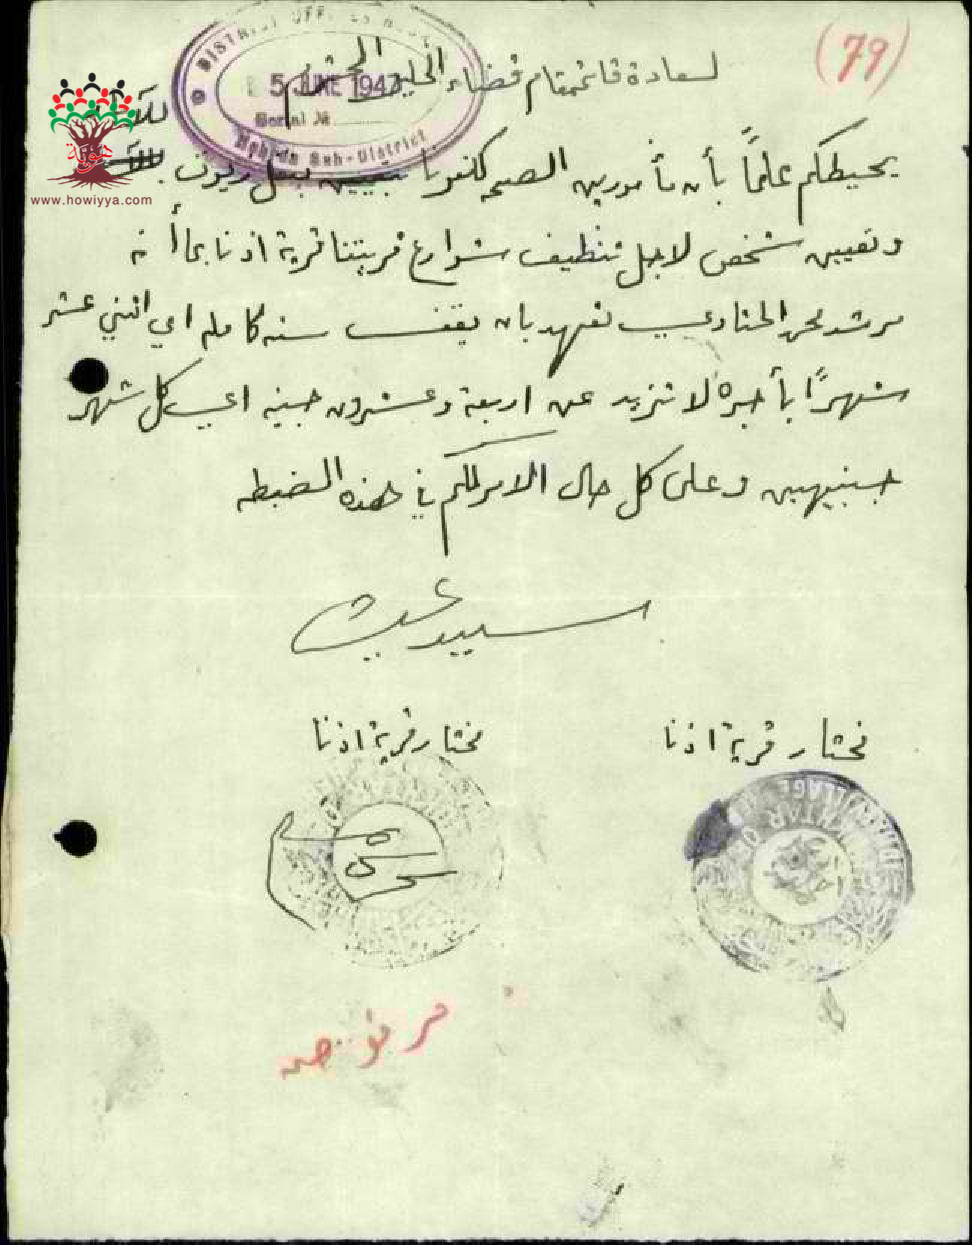 (79)
DISTRICT OFFICER'S
5 JUNE 1947
Serial №
Hebron Sub-District
لسعادة قائمقام قضاء الخليل المحترم
هوية
www.howiyya.com
يحيطكم علماً بأن مأمورين الصحه كلفونا
وتعيين شخص لاجل تنظيف شوارع قريتنا قرية اذنا بما أنه
مرشد الحتاوي تعهد بان يقف سنه كامله اي اثني عشر
شهرًا بأجرة لا تزيد عن اربعة وعشرون جنيه اي كل شهر
جنيهين وعلى كل حال الامر لكم في هذه المضبطه
مختار قرية اذنا
مختار قرية اذنا
MUKHTAR OF VILLAGE